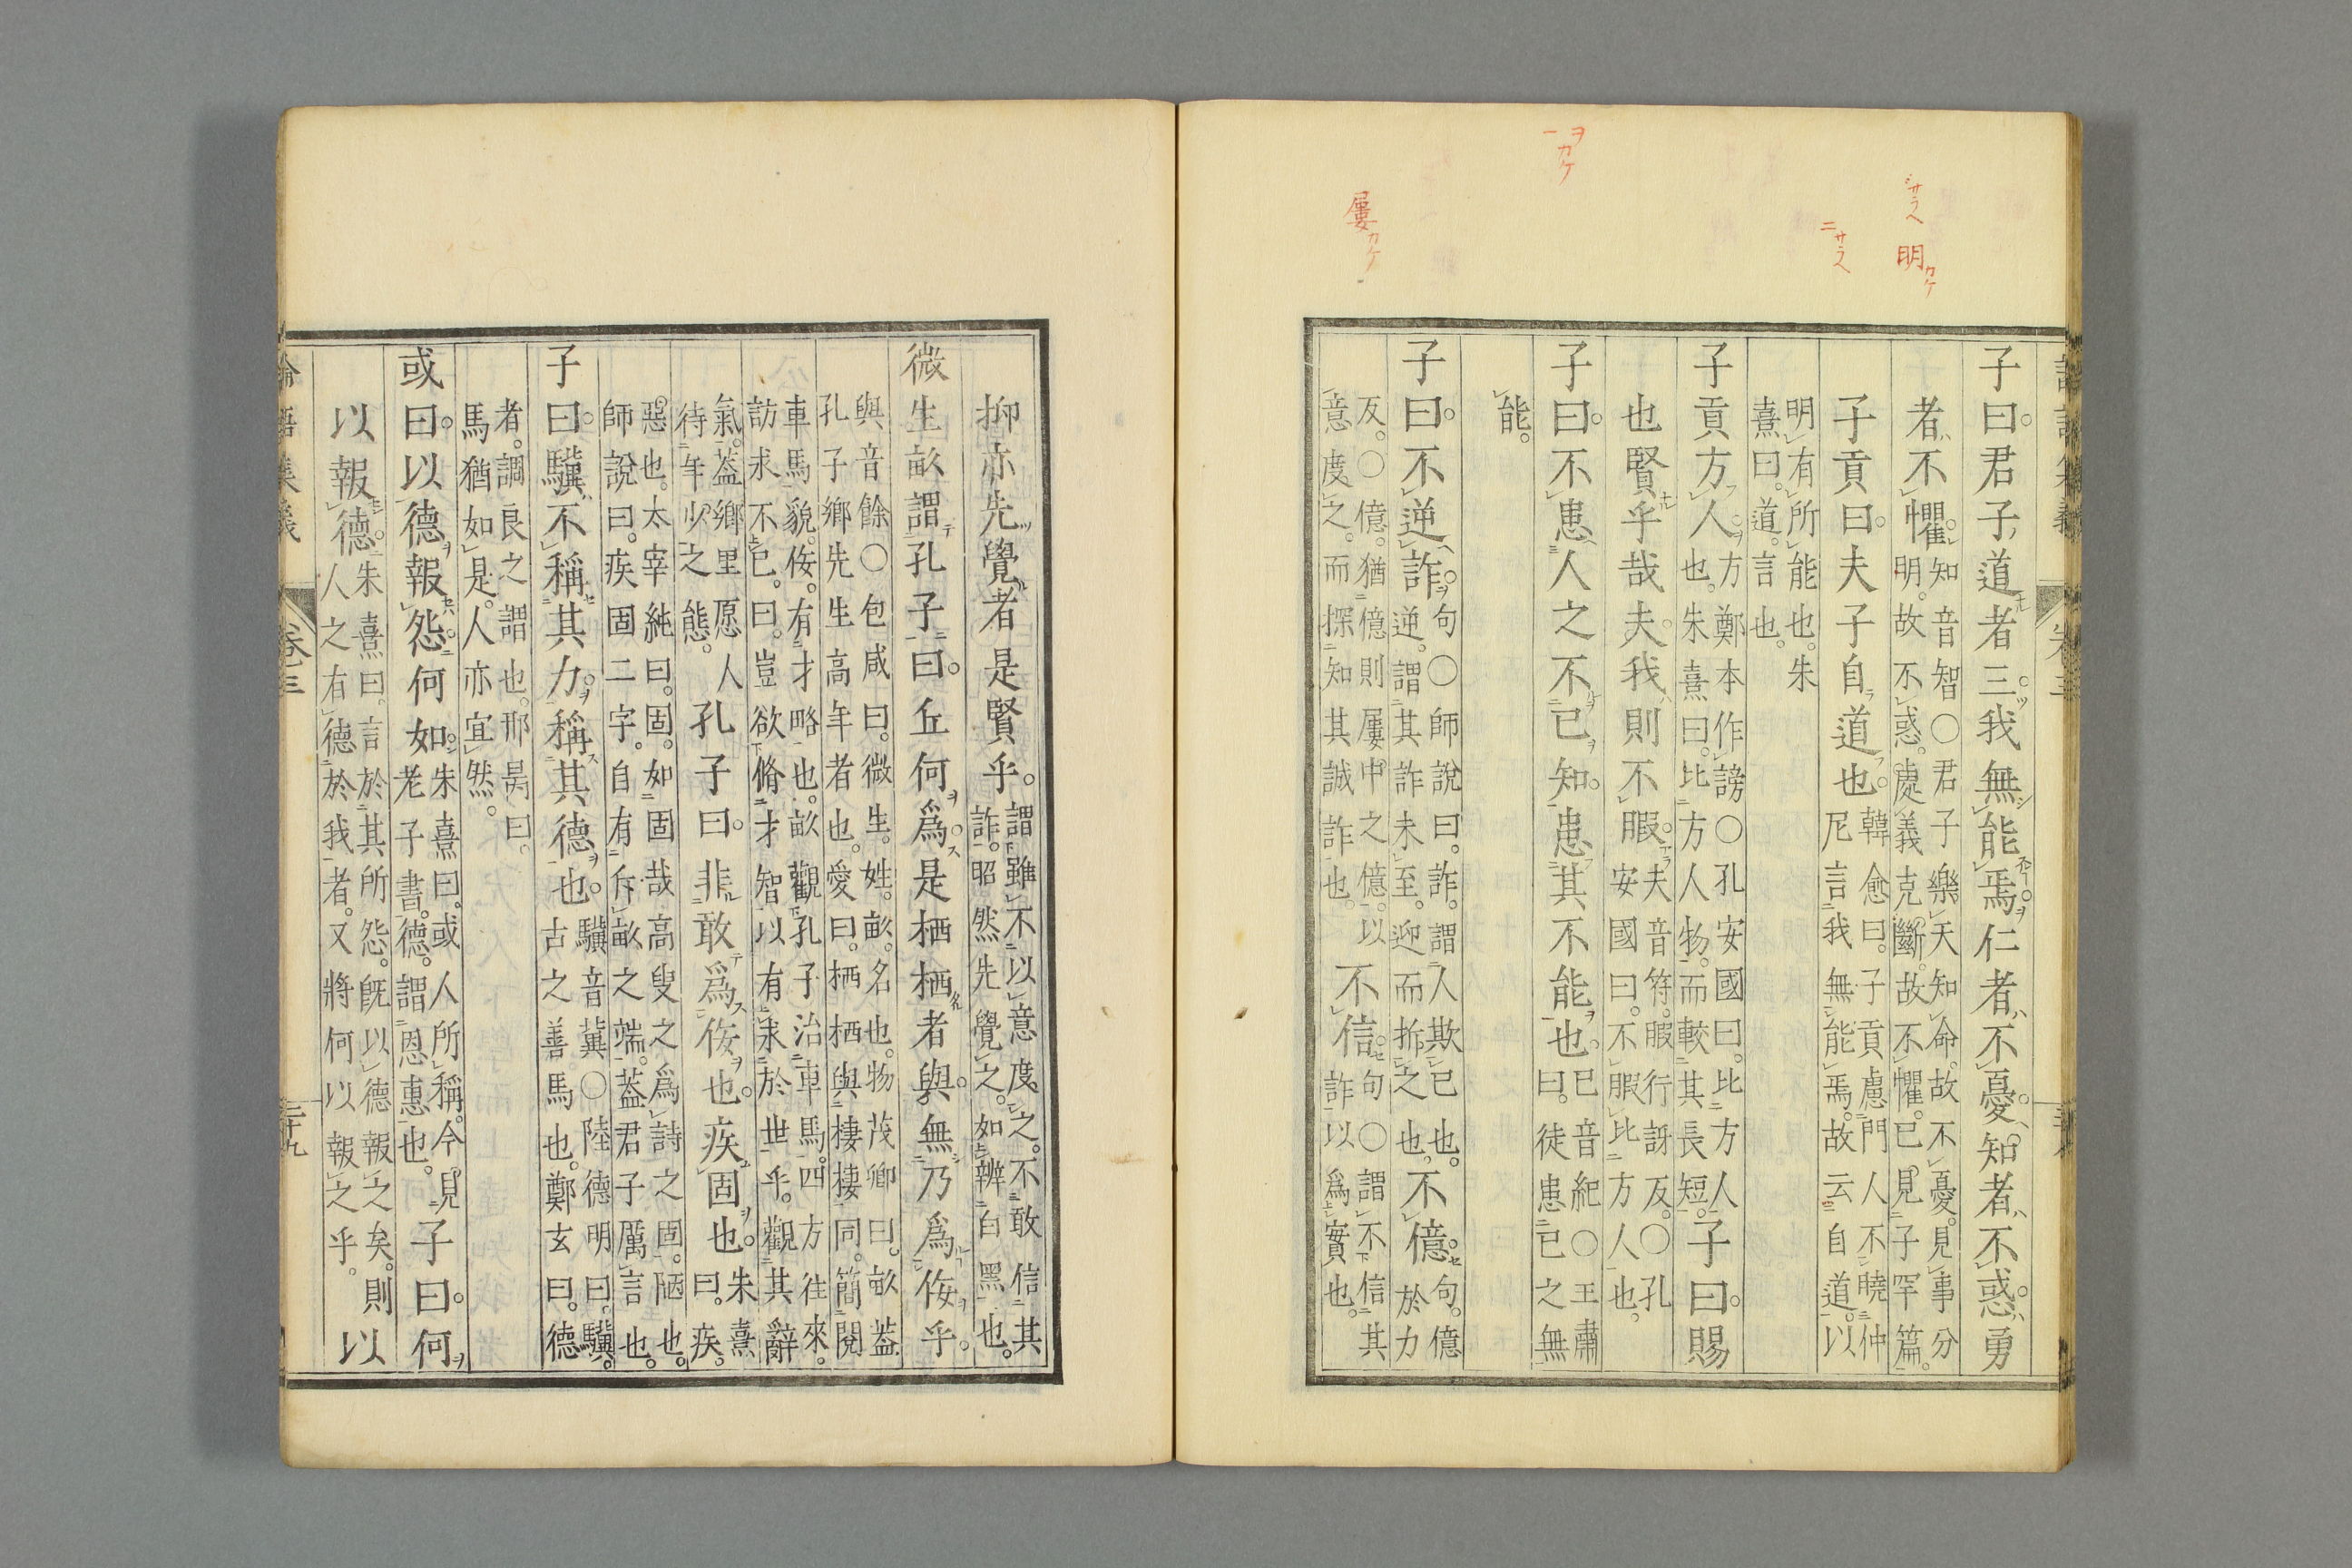 シサラヘ
明カケ
ニサラヘ
一ヲカケ
屢カケ
子曰。君子道者三。我無能焉。仁者不憂。知者不惑。勇
者不懼。知音智〇君子樂天知命。故不憂。見事分
明。故不惑。處義克斷。故不懼。已見子罕篇。
子貢曰。夫子自道也。韓愈曰。子貢慮門人不曉仲
尼言我無能焉。故云自道。以
明有所能也。朱
熹曰。道。言也。
子貢方人。方鄭本作謗〇孔安國曰。比方人
也。朱熹曰。比方人物。而較其長短。子曰。賜
也賢乎哉。夫我則不暇。夫音符。暇行訝反。〇孔
安國曰。不暇比方人也。
子曰。不患人之不己知。患其不能也。己音紀〇王肅
曰。徒患己之無
能。
子曰。不逆詐。句〇師說曰。詐。謂人欺己也。
逆。謂其詐未至。迎而拆之也。不億。句。億
於力
反。〇億。猶億則屢中之億。以
意度之。而探知其誠詐也。不信。句〇謂不信其
詐以爲實也。
抑亦先覺者是賢乎。謂雖不以意度之。不敢信其
詐。昭然先覺之。如辨白黑也。
微生畝謂孔子曰。丘何爲是栖栖者與。無乃爲佞乎。
與音餘〇包咸曰。微生。姓。畝。名也。物茂卿曰。畝蓋
孔子鄉先生高年者也。愛曰。栖栖與棲棲同。簡閱
車馬貌。佞。有才略也。畝觀孔子治車馬。四方往來。
訪求不已。曰。豈欲脩才智以有求於世乎。觀其辭
氣。蓋鄉里愿人
待年少之態。孔子曰。非敢爲佞也。疾固也。朱熹
曰。疾。
惡也。太宰純曰。固。如固哉高叟之爲詩之固。陋也。
師說曰。疾固二字。自有斥畝之端。蓋君子厲言也。
子曰。驥不稱其力。稱其德也。驥音冀〇陸德明曰。驥。
古之善馬也。鄭玄曰。德
者。調良之謂也。邢昺曰。
馬猶如是。人亦宜然。
或曰。以德報怨。何如。朱熹曰。或人所稱。今見
老子書。德。謂恩惠也。子曰。何
以報德。朱熹曰。言於其所怨。既以德報之矣。則
人之有德於我者。又將何以報之乎。以
論語集義 卷三 三十九